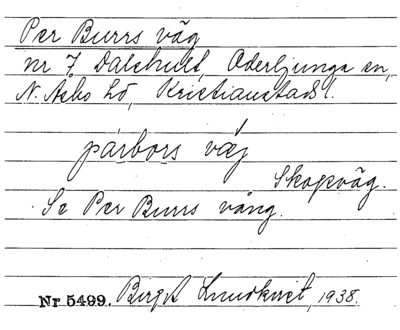 Per Burrs väg
nr 7 Dalshult, Oderljunga sn,
N. Åsbo hd, Kristianstads l.
pärbors väg
Skogsväg.
Se Per Burrs väng.
Nr 5499. Birgit Lundkvist, 1938.